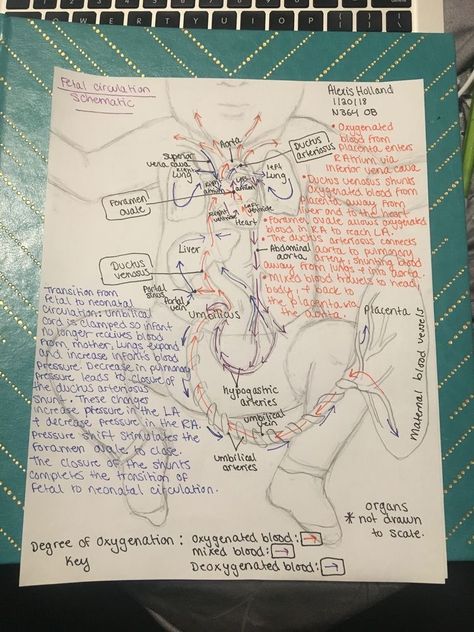 Fetal circulation
Schematic
Alexis Holland
1/20/18
N364 OB
• Oxygenated
blood from
placenta enters
R Atrium via
inferior vena cava
• Ductus venosus shunts
oxygenated blood from
placenta away from
liver and to the heart
• Foramen ovale allows oxygenated
blood in RA to reach LA.
• The ductus arteriosus connects
aorta to pulmonary
artery, shunting blood
away from lungs + into aorta.
• Mixed blood travels to head,
body, + back to
the placenta via
the aorta.
Aorta
Ductus
arteriosus
Superior
vena cava
right
lung
left
lung
right
atrium
left
atrium
Foramen
ovale
right
ventricle
left
ventricle
Heart
Liver
Abdominal
aorta
Ductus
venosus
Portal
sinus
Portal
vein
Umbilicus
Transition from
Fetal to neonatal
circulation: Umbilical
cord is clamped so infant
no longer recives blood
from mother, Lungs expand
and increase infants blood
pressure. Decrease in pulmonary
pressure leads to closure of
the ductus arteriosus
shunt. These changes
increase pressure in the LA
+ decrease pressure in the RA.
Pressure shift stimulates the
Foramen ovale to close.
The closure of the shunts
completes the transition of
Fetal to neonatal circulation.
hypogastric
arteries
umbilical
vein
umbilical
arteries
Placenta
Maternal blood vessels
organs
* not drawn
to scale.
Degree of Oxygenation: Oxygenated blood:
Key
mixed blood:
Deoxygenated blood: